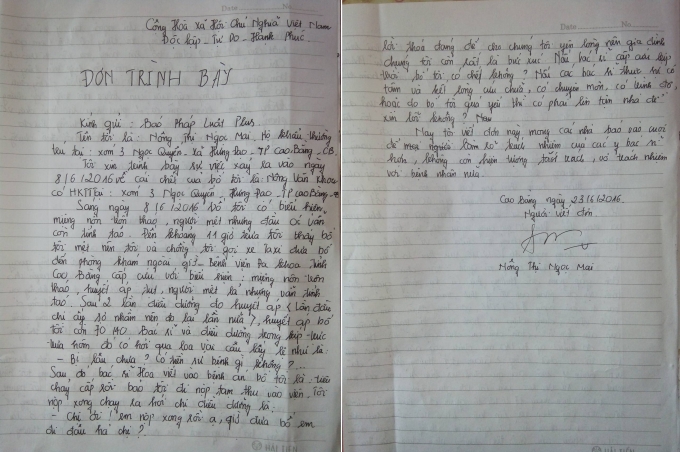 Cộng Hoà Xã Hội Chủ Nghĩa Việt Nam
Độc lập - Tự Do - Hạnh Phúc
ĐƠN TRÌNH BÀY
Kính gửi: Báo Pháp Luật Plus.
Tên tôi là: Nông Thị Ngọc Mai, Hộ khẩu thường
trú tại: xóm 3 Ngọc Quyến - xã Hưng Đạo - TP Cao Bằng - CB
Tôi xin trình bày sự việc xảy ra vào ngày
8/6/2016 về cái chết của bố tôi là: Nông Văn Khoa
có HKTT tại: xóm 3 Ngọc Quyến - Hưng Đạo - TP Cao Bằng - CB
Sáng ngày 8/6/2016 bố tôi có biểu hiện
miệng nôn trôn tháo, người mệt nhưng đầu óc vẫn
còn tỉnh táo. Đến khoảng 11 giờ trưa tôi thấy bố
tôi mệt nên tôi và chồng tôi gọi xe Taxi đưa bố
đến phòng khám ngoại giờ - Bệnh viện Đa khoa tỉnh
Cao Bằng cấp cứu với biểu hiện, miệng nôn trôn
tháo, huyết áp tụt, người mệt lả nhưng vẫn tỉnh
táo. Sau 2 lần điều dưỡng đo huyết áp (Lần đầu
chị ấy sợ nhầm nên đo lại lần nữa), huyết áp bố
tôi còn 70/40. Bác sĩ và điều dưỡng trong kíp trực
trưa hôm đó có hỏi qua loa vài câu lấy lệ như là:
- Bị lâu chưa? Có tiền sử bệnh gì không?...
Sau đó bác sĩ Hoa viết vào bệnh án bố tôi là: tiêu
chảy cấp rồi bảo tôi đi nộp tạm thu vào viện. Tôi
nộp xong chạy ra hỏi chị điều dưỡng là:
- Chị ơi! em nộp xong rồi ạ, giờ đưa bố em
đi đâu hả chị?
lời thoả đáng để cho chúng tôi yên lòng nên gia đình
chúng tôi còn rất là bức xúc. Nếu bác sĩ cấp cứu kịp
thời bố tôi có chết không? Nếu các bác sĩ thực sự có
tâm và hết lòng cứu chữa, có chuyên môn, có trình độ,
hoặc do bố tôi quá yếu thì có phải lên tận nhà để
xin lỗi không?
Nay tôi viết đơn này mong các nhà báo vào cuộc
để mọi người làm rõ trách nhiệm của các y bác sĩ
hơn, không còn hiện tượng tắc trách, vô trách nhiệm
với bệnh nhân nữa.
Cao Bằng ngày 23/6/2016.
Người viết đơn
Nông Thị Ngọc Mai
HẢI TIẾN